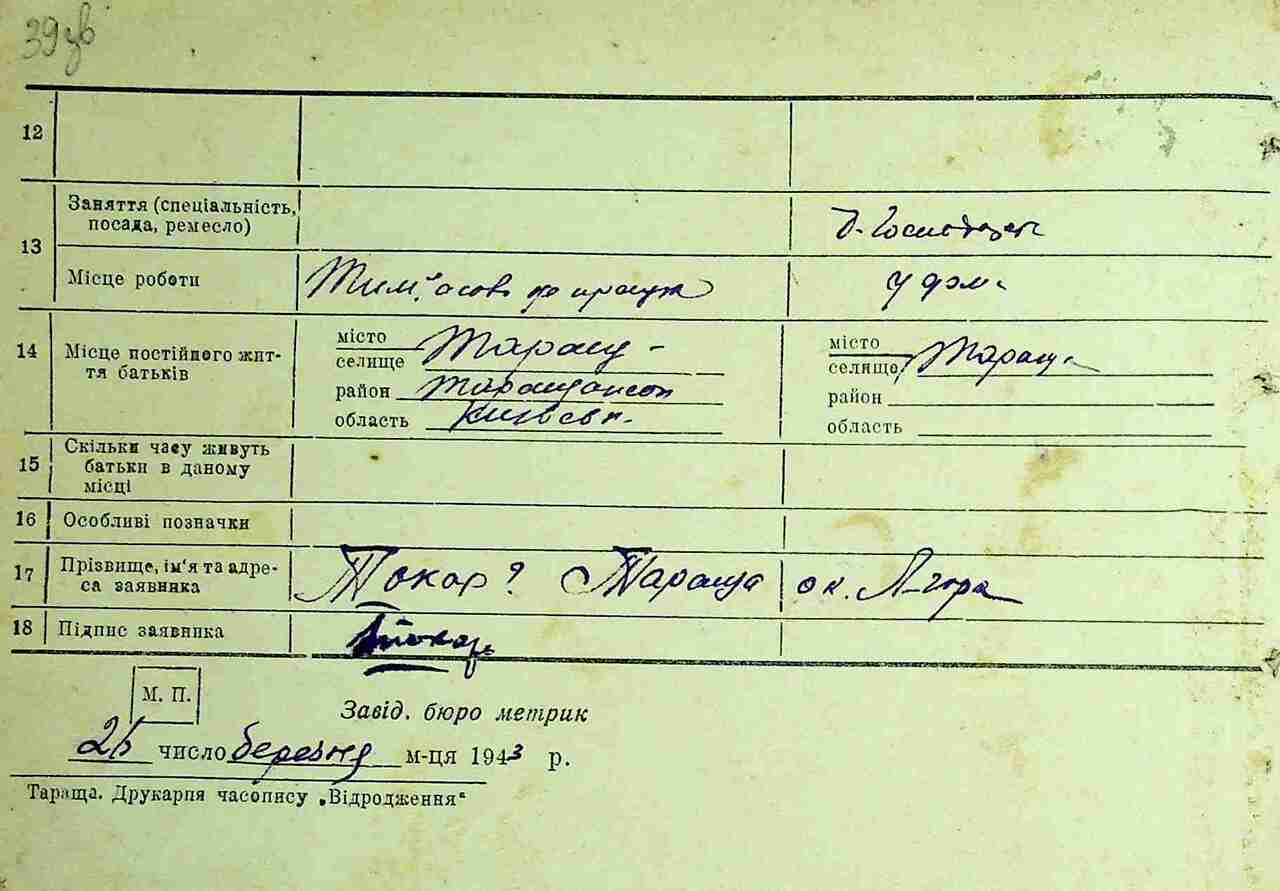 39 зв
12
13 Заняття (спеціальність, посада, ремесло) д. господарк
Місце роботи Тимчасово не працює у дома
14 Місце постійного життя батьків
місто
селище Тараща Тараща
район Таращанськ
область Київськ.
місто
селище
район
область
15 Скільки часу живуть батьки в даному місці
16 Особливі позначки
17 Прізвище, ім'я та адреса заявника Токар Тараща ок. Л-гора
18 Підпис заявника Токар
М. П.
Завід. бюро метрик
25 число березня м-ця 1943 р.
Тараща. Друкарня часопису „Відродження"